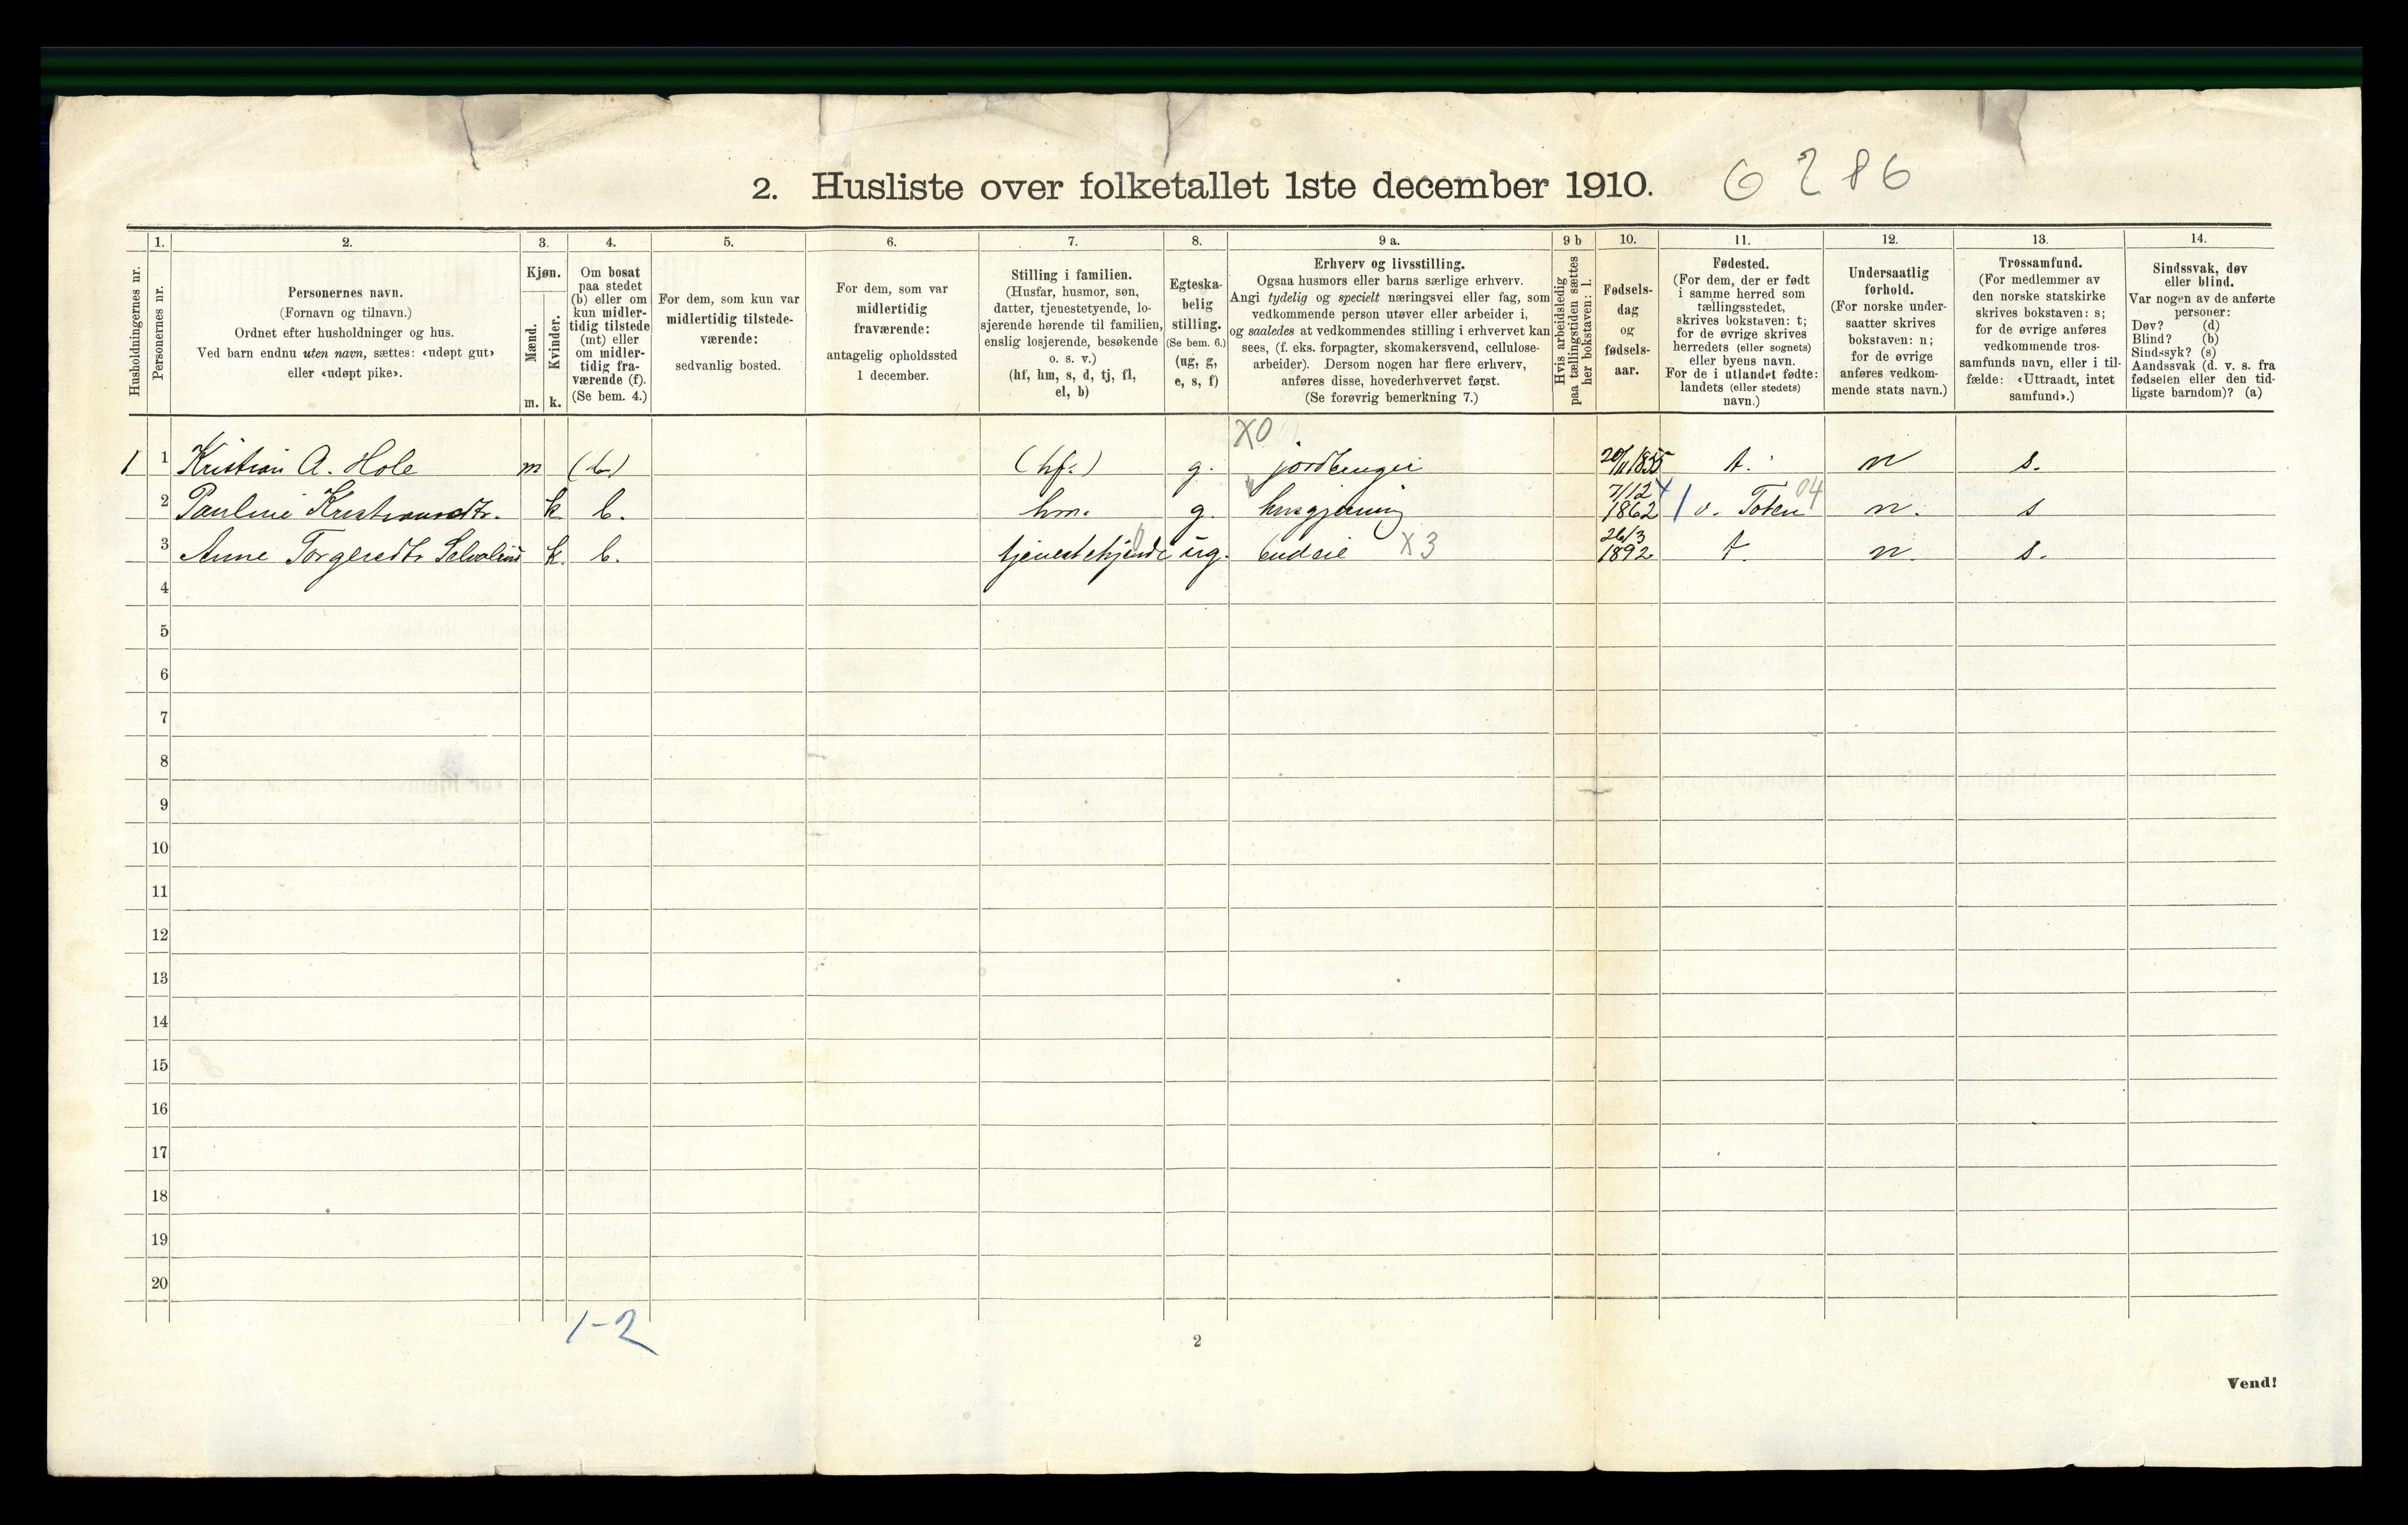 2. Husliste over folketallet 1ste december 1910. 6286
1. 2. 3. 4. 5. 6. 7. 8. 9 a. 9 b 10. 11. 12. 13. 14.
Husholdningernes nr.
Personernes nr.
Personernes navn.
(Fornavn og tilnavn.)
Ordnet efter husholdninger og hus.
Ved barn endnu uten navn, sættes: «udøpt gut»
eller «udøpt pike».
Kjøn.
Mænd.
Kvinder.
m. k.
Om bosat
paa stedet
(b) eller om
kun midler-
tidig tilstede
(mt) eller
om midler-
tidig fra-
værende (f).
(Se bem. 4.)
For dem, som kun var
midlertidig tilstede-
værende:
sedvanlig bosted.
For dem, som var
midlertidig
fraværende:
antagelig opholdssted
1 december.
Stilling i familien.
(Husfar, husmor, søn,
datter, tjenestetyende, lo-
sjerende hørende til familien,
enslig losjerende, besøkende
o. s. v.)
(hf, hm, s, d, tj, fl,
el, b)
Egteska-
belig
stilling.
(Se bem. 6.)
(ug, g,
e, s, f)
Erhverv og livsstilling.
Ogsaa husmors eller barns særlige erhverv.
Angi tydelig og specielt næringsvei eller fag, som
vedkommende person utøver eller arbeider i,
og saaledes at vedkommendes stilling i erhvervet kan
sees, (f. eks. forpagter, skomakersvend, cellulose-
arbeider). Dersom nogen har flere erhverv,
anføres disse, hovederhvervet først.
(Se forøvrig bemerkning 7.)
Hvis arbeidsledig
paa tællingstiden sættes
her bokstaven: l.
Fødsels-
dag
og
fødsels-
aar.
Fødested.
(For dem, der er født
i samme herred som
tællingsstedet,
skrives bokstaven: t;
for de øvrige skrives
herredets (eller sognets)
eller byens navn.
For de i utlandet fødte:
landets (eller stedets)
navn.)
Undersaatlig
forhold.
(For norske under-
saatter skrives
bokstaven: n;
for de øvrige
anføres vedkom-
mende stats navn.)
Trossamfund.
(For medlemmer av
den norske statskirke
skrives bokstaven: s;
for de øvrige anføres
vedkommende tros-
samfunds navn, eller i til-
fælde: «Uttraadt, intet
samfund».)
Sindssvak, døv
eller blind.
Var nogen av de anførte
personer:
Døv? (d)
Blind? (b)
Sindssyk? (s)
Aandssvak (d. v. s. fra
fødselen eller den tid-
ligste barndom)? (a)
X0
1 1 Kristian A. Hole m (b) (hf.) g. 1855 t. n s.
2 Pauline k b. hm. g. husgjerning 7/12 1862 v. Toten 04 n. s
3 Anne k. b. ug. X3 26/3 1892 t. n. s.
4
5
6
7
8
9
10
11
12
13
14
15
16
17
18
19
20
1-2
2
Vend!